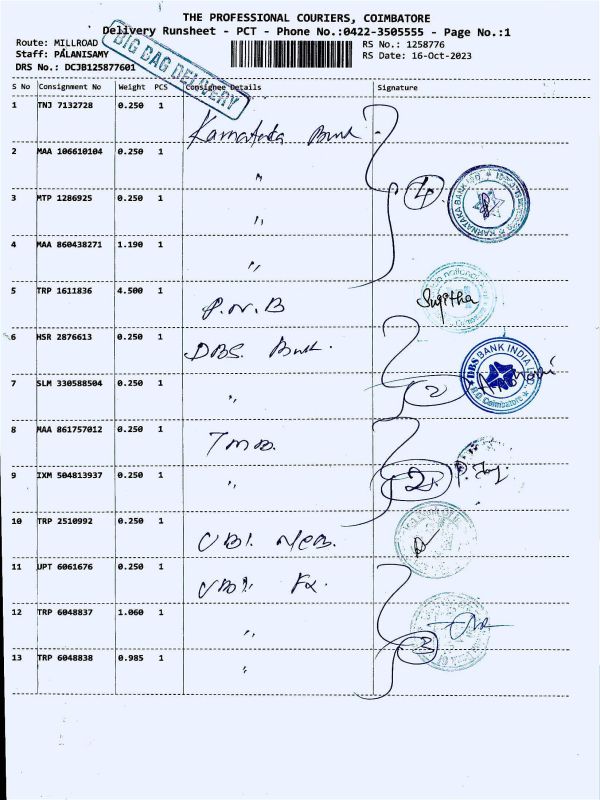 THE PROFESSIONAL COURIERS, COIMBATORE
Delivery Runsheet - PCT - Phone No.:0422-3505555 - Page No.:1
Route: MILLROAD
RS No.: 1258776
Staff: PALANISAMY
RS Date: 16-Oct-2023
DRS No.: DCJB125877601
BIG BAG DELIVERY
S No Consignment No Weight PCS Consignee Details Signature
1 TNJ 7132728 0.250 1 Karnataka Bank
2 MAA 106610104 0.250 1 "
3 MTP 1286925 0.250 1 "
4
KARNATAKA BANK
4 MAA 860438271 1.190 1 "
5 TRP 1611836 4.500 1 P.N.B
Sujitha
6 HSR 2876613 0.250 1 DBS. Bank.
DBS BANK INDIA
Coimbatore
7 SLM 330588504 0.250 1 "
2
8 MAA 861757012 0.250 1 TMB.
9 IXM 504813937 0.250 1 "
2
10 TRP 2510992 0.250 1 UBI.
11 UPT 6061676 0.250 1 UBI
12 TRP 6048837 1.060 1 "
3
13 TRP 6048838 0.985 1 "